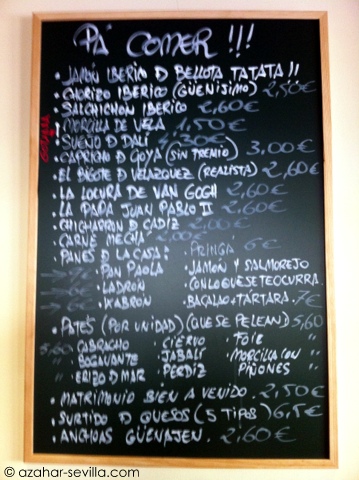 PA' COMER !!!
• JAMÓN IBERICO D BELLOTA TATATA !!
• CHORIZO IBERICO (GÜENISIMO) 2,50€
• SALCHICHON IBERICO 2,60€
• MORCILLA DE VELA 1,50€
• SUEÑO D DALÍ 4,30€
• CAPRICHO D GOYA (SIN TREMIO) 3,00€
• EL BIGOTE D VELAZQUEZ (REALISTA) 2,60€
• LA LOCURA DE VAN GOGH 2,60€
• LA PAPA JUAN PABLO II 2,60€
• CHICHARRON D CADIZ 2,00€
• CARNE MECHA 2,00€
• PANES D LA CASA: • PRINGA 6€
• PAN PAOLA • JAMÓN Y SALMOREJO
• LADRÓN • CON LO QUE SE TE OCURRA.
• KABRON • BACALAO + TARTARA. 7€
• PATÉS (POR UNIDAD) (QUE SE PELEAN) 5,60
5,60 • CABRACHO • CIERVO • FOIE "
" • BOGAVANTE • JABALÍ • MORCILLA CON "
" • ERIZO D MAR • PERDIZ PIÑONES "
• MATRIMONIO BIEN AVENIDO. 2,50€
• SURTIDO D QUESOS (5 TIPOS) 6,5€
• ANCHOAS GÜENAJEN. 2,60€
© azahar-sevilla.com